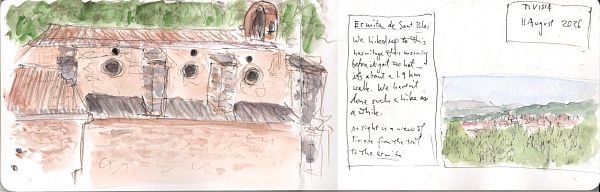 Ermita de Sant Blai
We hiked up to this
hermitage this morning
before it got too hot —
it's about a 1.9 km
walk. We haven't
done such a hike in
a while.
At right is a view of
Tivissa from the trail
to the ermita
TIVISSA
11 August 2025